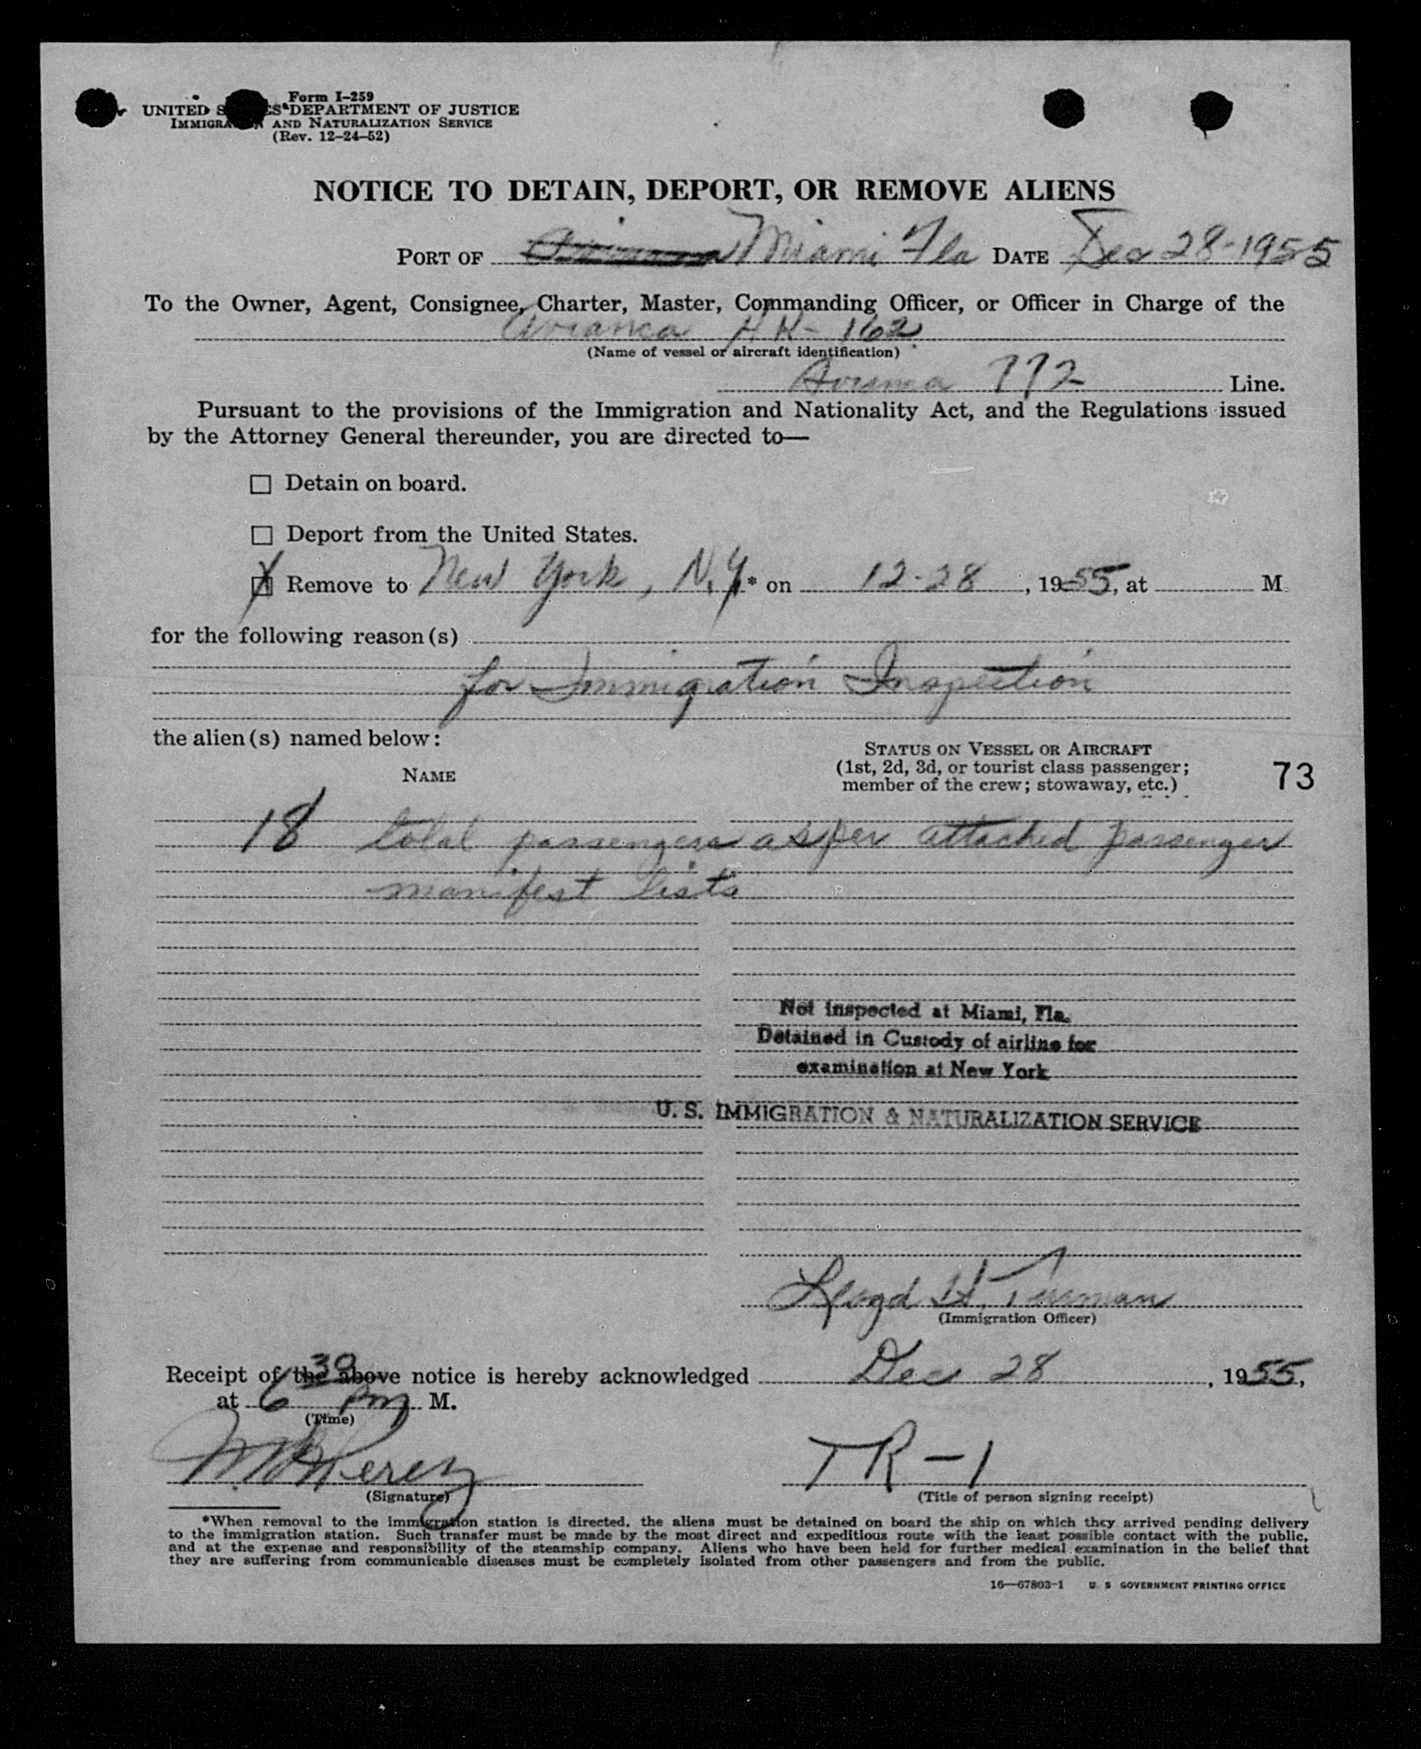 Form I-259
UNITED S ES DEPARTMENT OF JUSTICE
IMMIGRA N AND NATURALIZATION SERVICE
(Rev. 12-24-52)
NOTICE TO DETAIN, DEPORT, OR REMOVE ALIENS
PORT OF Miami Fla DATE Dec 28-1955
To the Owner, Agent, Consignee, Charter, Master, Commanding Officer, or Officer in Charge of the
Avianca HK-162
(Name of vessel or aircraft identification)
772 Line.
Pursuant to the provisions of the Immigration and Nationality Act, and the Regulations issued
by the Attorney General thereunder, you are directed to—
☐ Detain on board.
☐ Deport from the United States.
☒ Remove to New York, N.Y.* on 12-28, 1955, at M.
for the following reason(s)
for Immigration Inspection
the alien(s) named below:
NAME
STATUS ON VESSEL OR AIRCRAFT
(1st, 2d, 3d, or tourist class passenger;
member of the crew; stowaway, etc.)
73
18 total passengers as per attached passenger
manifest lists
Not inspected at Miami, Fla.
Detained in Custody of airline for
examination at New York
U. S. IMMIGRATION & NATURALIZATION SERVICE
Lloyd H.
(Immigration Officer)
Receipt of the above notice is hereby acknowledged Dec 28, 1955,
at 6 30 pm M.
(Time)
Perez TR-1
(Signature) (Title of person signing receipt)
*When removal to the immigration station is directed, the aliens must be detained on board the ship on which they arrived pending delivery
to the immigration station. Such transfer must be made by the most direct and expeditious route with the least possible contact with the public,
and at the expense and responsibility of the steamship company. Aliens who have been held for further medical examination in the belief that
they are suffering from communicable diseases must be completely isolated from other passengers and from the public.
16—67803-1 U. S. GOVERNMENT PRINTING OFFICE